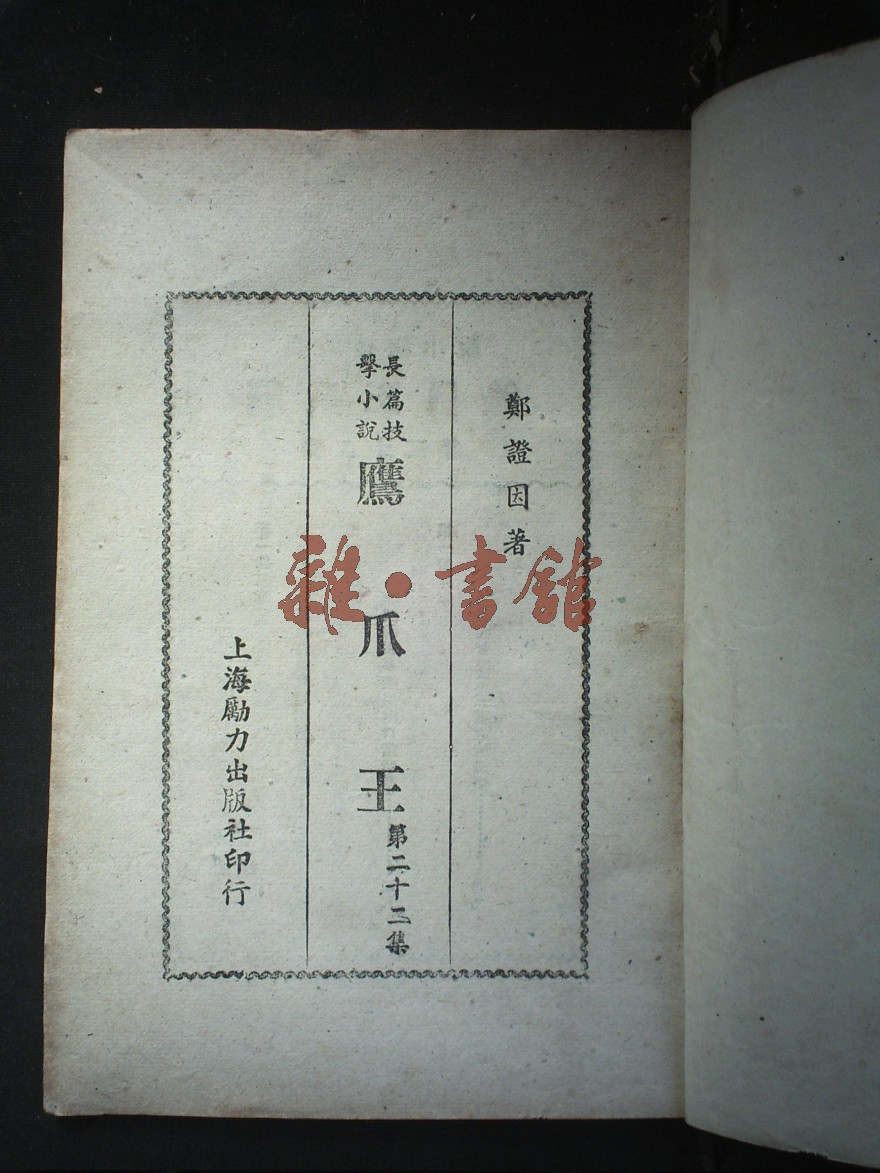 鄭證因著
長篇技
擊小說
鷹爪王
第二十二集
上海勵力出版社印行
雜·書館